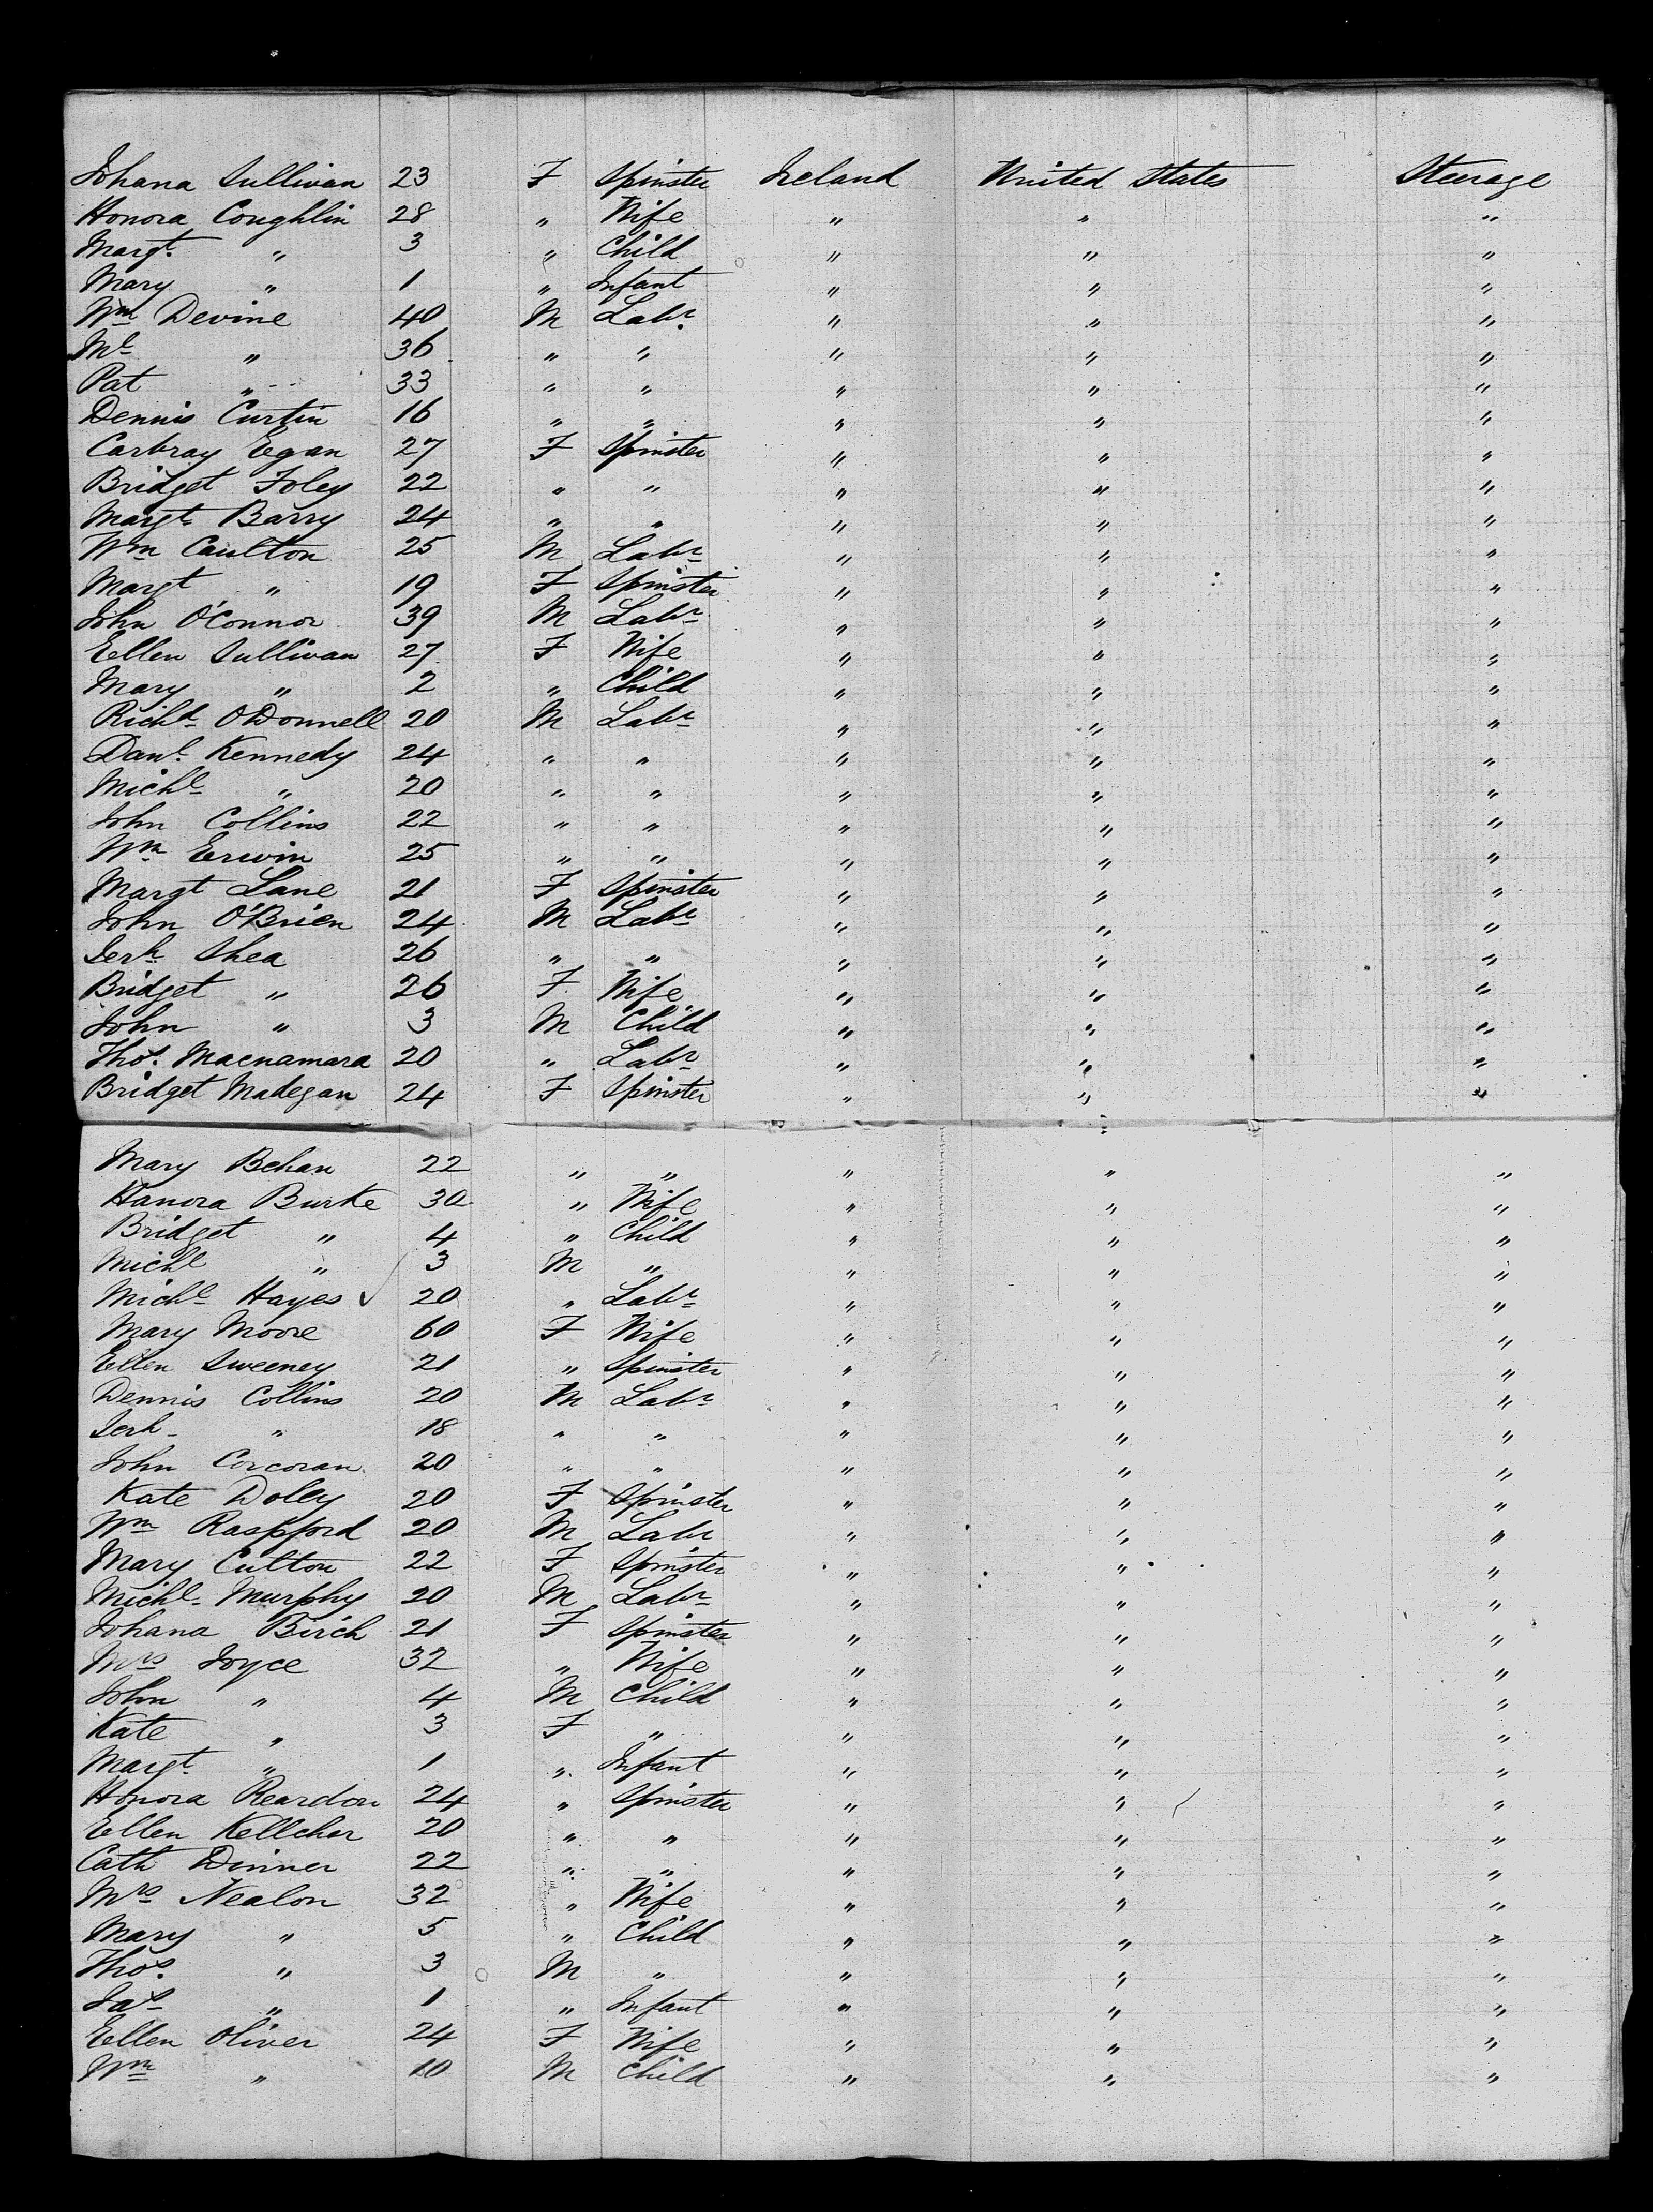 Johana Sullivan 23 F Spinster Ireland United States Steerage
Honora Coughlin 28 " Wife " " "
Margt. " 3 " Child " " "
Mary " 1 " Infant " " "
Wm Devine 40 M Labr. " " "
Ml " 36 " " " " "
Pat " 33 " " " " "
Dennis Curtin 16 " " " " "
Carbray Egan 27 F Spinster " " "
Bridget Foley 22 " " " " "
Margt. Barry 24 " " " " "
Wm Caulton 25 M Labr " " "
Margt " 19 F Spinster " " "
John O'Connor 39 M Labr " " "
Ellen Sullivan 27 F Wife " " "
Mary " 2 " Child " " "
Richd O'Donnell 20 M Labr " " "
Danl. Kennedy 24 " " " " "
Michl " 20 " " " " "
John Collins 22 " " " " "
Wm Erwin 25 " " " " "
Margt Lane 21 F Spinster " " "
John O'Brien 24 M Labr " " "
Jerh Shea 26 " " " " "
Bridget " 26 F Wife " " "
John " 3 M Child " " "
Thos. Macnamara 20 " Labr " " "
Bridget Madegan 24 F Spinster " " "
Mary Behan 22 " " " " "
Hanora Burke 30 " Wife " " "
Bridget " 4 " Child " " "
Michl " 3 M " " " "
Michl Hayes 20 " Labr " " "
Mary Moore 60 F Wife " " "
Ellen Sweeney 21 " Spinster " " "
Dennis Collins 20 M Labr " " "
Jerh " 18 " " " " "
John Corcoran 20 " " " " "
Kate Doley 20 F Spinster " " "
Wm Raspford 20 M Labr " " "
Mary Culton 22 F Spinster " " "
Michl Murphy 20 M Labr " " "
Johana Birch 21 F Spinster " " "
Mrs Joyce 32 " Wife " " "
John " 4 M Child " " "
Kate " 3 F " " " "
Margt. " 1 " Infant " " "
Honora Reardon 24 " Spinster " " "
Ellen Kelleher 20 " " " " "
Cath Dinner 22 " " " " "
Mrs Nealon 32 " Wife " " "
Mary " 5 " Child " " "
Thos. " 3 M " " " "
Jas " 1 " Infant " " "
Ellen Oliver 24 F Wife " " "
Wm " 10 M Child " " "